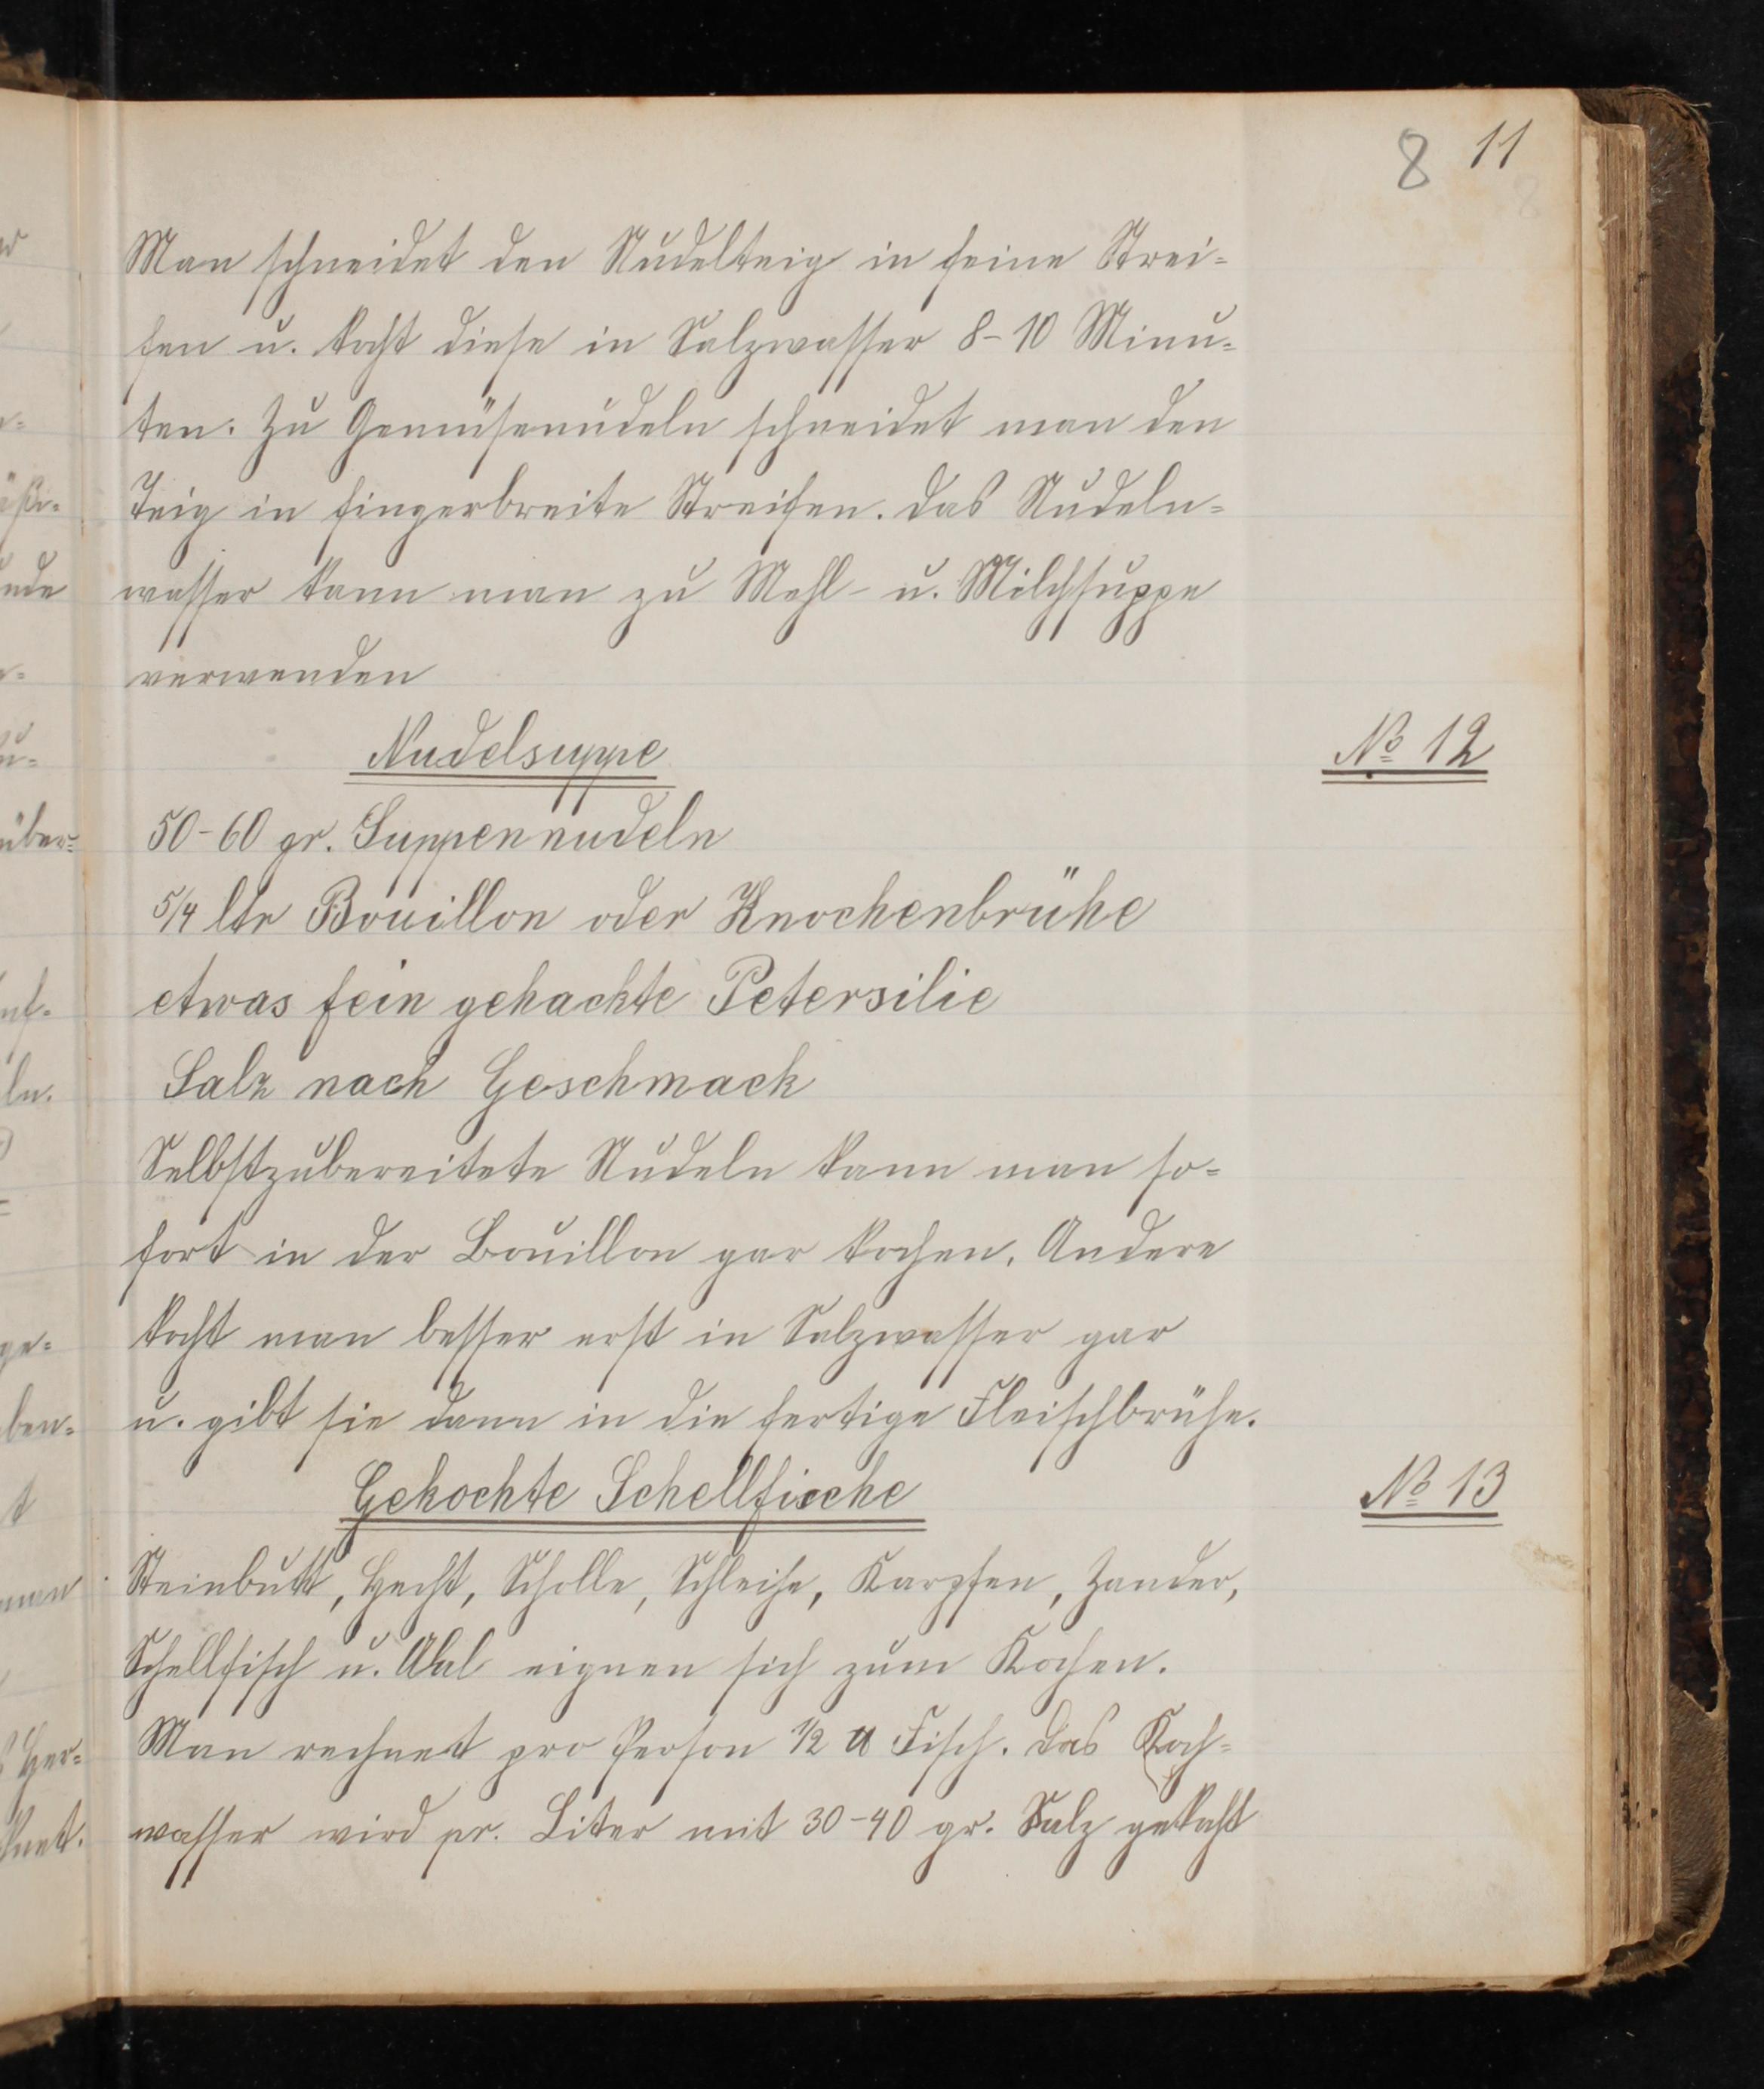 8 11
Man schneidet den Nudelteig in feine Strei=
fen u. kocht diese in Salzwasser 8-10 Minu=
ten. Zu Gemüsenudeln schneidet man den
Teig in fingerbreite Streifen. Das Nudeln=
wasser kann man zu Mehl- u. Milchsuppe
verwenden
Nudelsuppe No 12
50-60 gr. Suppennudeln
5/4 ltr Bouillon oder Knochenbrühe
etwas fein gehackte Petersilie
Salz nach Geschmack
Selbstzubereitete Nudeln kann man so=
fort in der Bouillon gar kochen. Andere
kocht man besser erst in Salzwasser gar
u. gibt sie dann in die fertige Fleischbrühe.
Gekochte Schellfische No 13
Steinbutt, Hecht, Scholle, Schleihe, Karpfen, Zander,
Schellfisch u. Aal eignen sich zum Kochen.
Man rechnet pro Person 1/2 ℔ Fisch. Das Koch=
wasser wird pr. Liter mit 30-40 gr. Salz gekocht